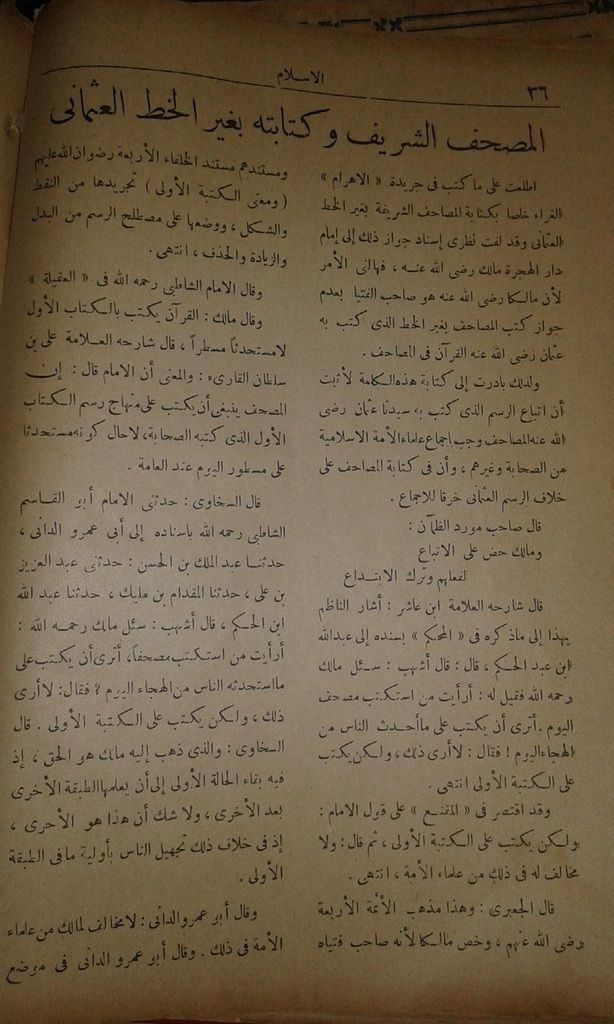 ٣٦
الاسلام
المصحف الشريف وكتابته بغير الخط العثمانى
اطلعت على ما كتب فى جريدة « الاهرام »
الغراء خاصا بكتابة المصاحف الشريفة بغير الخط
العثمانى وقد لفت نظرى إسناد جواز ذلك إلى إمام
دار الهجرة مالك رضى الله عنه ، فهالنى الأمر
لأن مالكا رضى الله عنه هو صاحب الفتيا بعدم
جواز كتب المصاحف بغير الخط الذى كتب به
عثمان رضى الله عنه القرآن فى المصاحف .
ولذلك بادرت إلى كتابة هذه الكلمة لأثبت
أن اتباع الرسم الذى كتب به سيدنا عثمان رضى
الله عنه المصاحف وجب باجماع علماء الأمة الاسلامية
من الصحابة وغيرهم ، وأن فى كتابة المصاحف على
خلاف الرسم العثمانى خرقا للاجماع .
قال صاحب مورد الظمآن :
ومالك حض على الاتباع
لفعلهم وترك الابتداع
قال شارحه العلامة ابن عاشر : أشار الناظم
بهذا إلى ماذكره فى « المحكم » بسنده إلى عبدالله
ابن عبد الحكم ، قال : قال أشهب : سئل مالك
رحمه الله فقيل له : أرأيت من استكتب مصحف
اليوم . أترى أن يكتب على ماأحدث الناس من
الهجاء اليوم ! فقال : لاأرى ذلك ، ولكن يكتب
على الكتبة الأولى انتهى .
وقد اقتصر فى « المقنع » على قول الامام :
ولكن يكتب على الكتبة الأولى ، ثم قال : ولا
مخالف له فى ذلك من علماء الأمة ، انتهى .
قال الجعبرى : وهذا مذهب الأئمة الأربعة
رضى الله عنهم ، وخص مالكا لأنه صاحب فتياه
ومستندهم مستند الخلفاء الأربعة رضوان الله عليهم
( ومعنى الكتبة الأولى ) تجريدها من النقط
والشكل ، ووضعها على مصطلح الرسم من البدل
والزيادة والحذف ، انتهى .
وقال الامام الشاطبى رحمه الله فى « العقيلة »
وقال مالك : القرآن يكتب بالكتاب الأول
لامستحدثاً مسطراً ، قال شارحه العلامة على بن
سلطان القارىء : والمعنى أن الامام قال : إن
المصحف ينبغى أن يكتب على منهاج رسم الكتاب
الأول الذى كتبه الصحابة، لاحال كونه مستحدثا
على مسطور اليوم عند العامة .
قال السخاوى : حدثنى الامام أبو القاسم
الشاطبى رحمه الله باسناده إلى أبى عمرو الدانى ،
حدثنا عبد الملك بن الحسن : حدثنى عبد العزيز
بن على ، حدثنا المقدام بن مليك ، حدثنا عبد الله
ابن الحكم ، قال أشهب : سئل مالك رحمه الله :
أرأيت من استكتب مصحفاً، أترى أن يكتب على
مااستحدثه الناس من الهجاء اليوم ؟ فقال: لاأرى
ذلك ، ولكن يكتب على الكتبة الأولى . قال
السخاوى : والذى ذهب إليه مالك هو الحق ، إذ
فيه بقاء الحالة الأولى إلى أن يعلمها الطبقة الأخرى
بعد الأخرى ، ولا شك أن هذا هو الأحرى ،
إذ فى خلاف ذلك تجهيل الناس بأولية مافى الطبقة
الأولى .
وقال أبو عمرو الدانى : لامخالف لمالك من علماء
الأمة فى ذلك . وقال أبو عمرو الدانى فى موضع